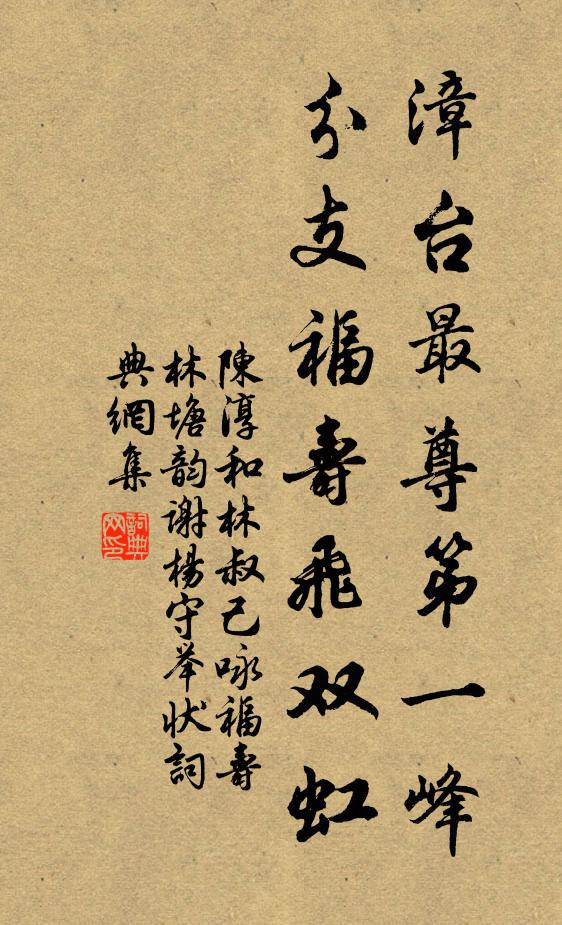 漳台最尊第一峰
分支福壽飛双虹
陳淳和林叔己咏福壽
林塘韵谢楊守举状詞
典網集
詞典
网印